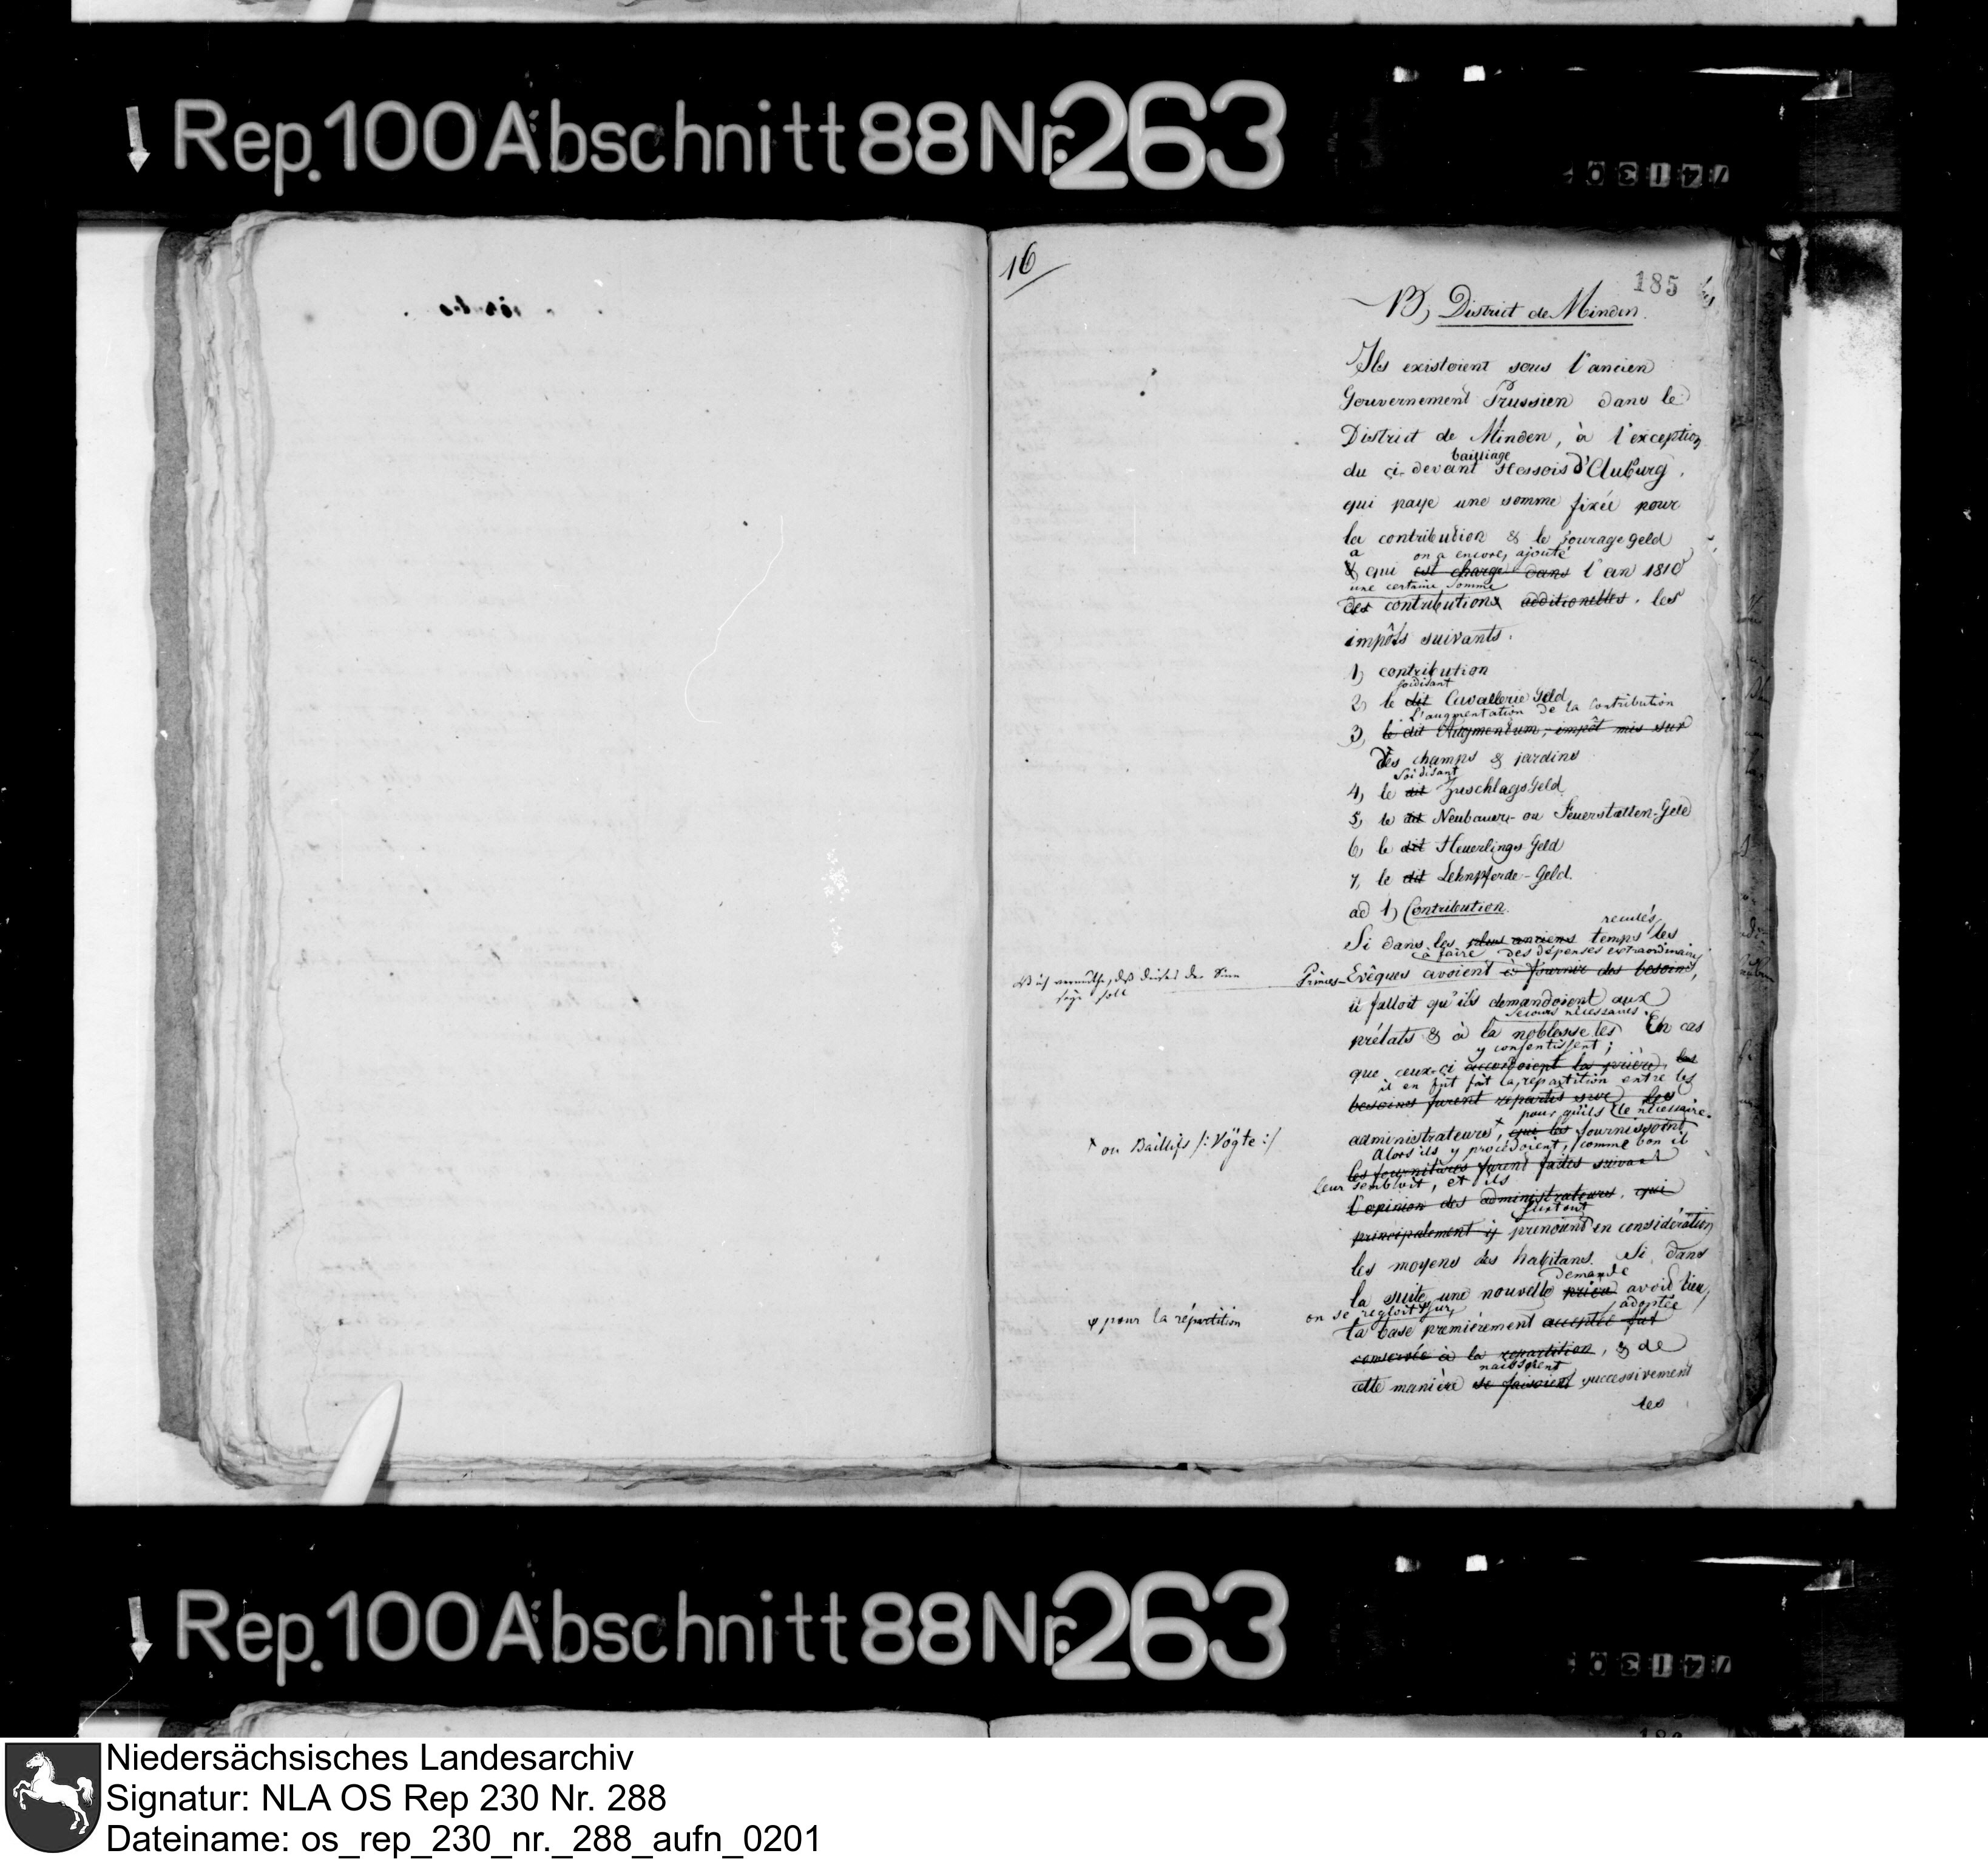 Rep. 100 Abschnitt 88 Nr. 263
16
185
B, District de Minden.
Ils existoient sous l'ancien
Gouvernement Prussien dans le
District de Minden, à l'exception
bailliage
du çi-devant Hessois d'Auburg,
qui paye une somme fixée pour
la contribution & le fourage geld
a on a encore, ajouté
& qui est chargé dans l'an 1810
une certaine somme
des contributions additionelles. les
impôts suivants.
1, contribution
soidisant
2, le dit Cavallerie Geld
l'augmentation de la Contribution
3, le dit Augmentum, impôt mis sur
des champs & jardins
soidisant
4, le dit Zuschlags Geld
5, le dit Neubauer- ou Feuerstätten-Geld
6, le dit Heuerlings Geld
7, le dit Lehnpferde-Geld.
ad 1, Contribution.
reculés
Si dans les plus anciens temps les
à faire des dépenses extraordinaires
Princes-Evêques avoient à fournir des besoins,
ich vermuthe, daß dieses der Sinn
seyn soll
il falloit qu'ils demandoient aux
secours nécessaires.
prélats & à la noblesse les En cas
y consentissent;
que ceux-çi accordoient la prière, les
il en fut fait la répartition entre les
besoins furent repartis sur les
pour qu'ils le nécessaire.
administrateurs, qui les fournissoient
* ou Baillifs /: Vögte :/
Alors ils y procédoient, comme bon il
les fournitures furent faites suivant
leur sembloit, et ils
l'opinion des administrateurs, qui
surtout
principalement y prenoient en considération
les moyens des habitans. Si dans
demande
la suite une nouvelle prière avoit lieu,
on se regloit sur, adoptée
la base premièrement acceptée fut
φ pour la répartition
conservée à la repartition, & de
naissoient
cette manière se faisoient successivement
les
Rep. 100 Abschnitt 88 Nr. 263
Niedersächsisches Landesarchiv
Signatur: NLA OS Rep 230 Nr. 288
Dateiname: os_rep_230_nr._288_aufn_0201